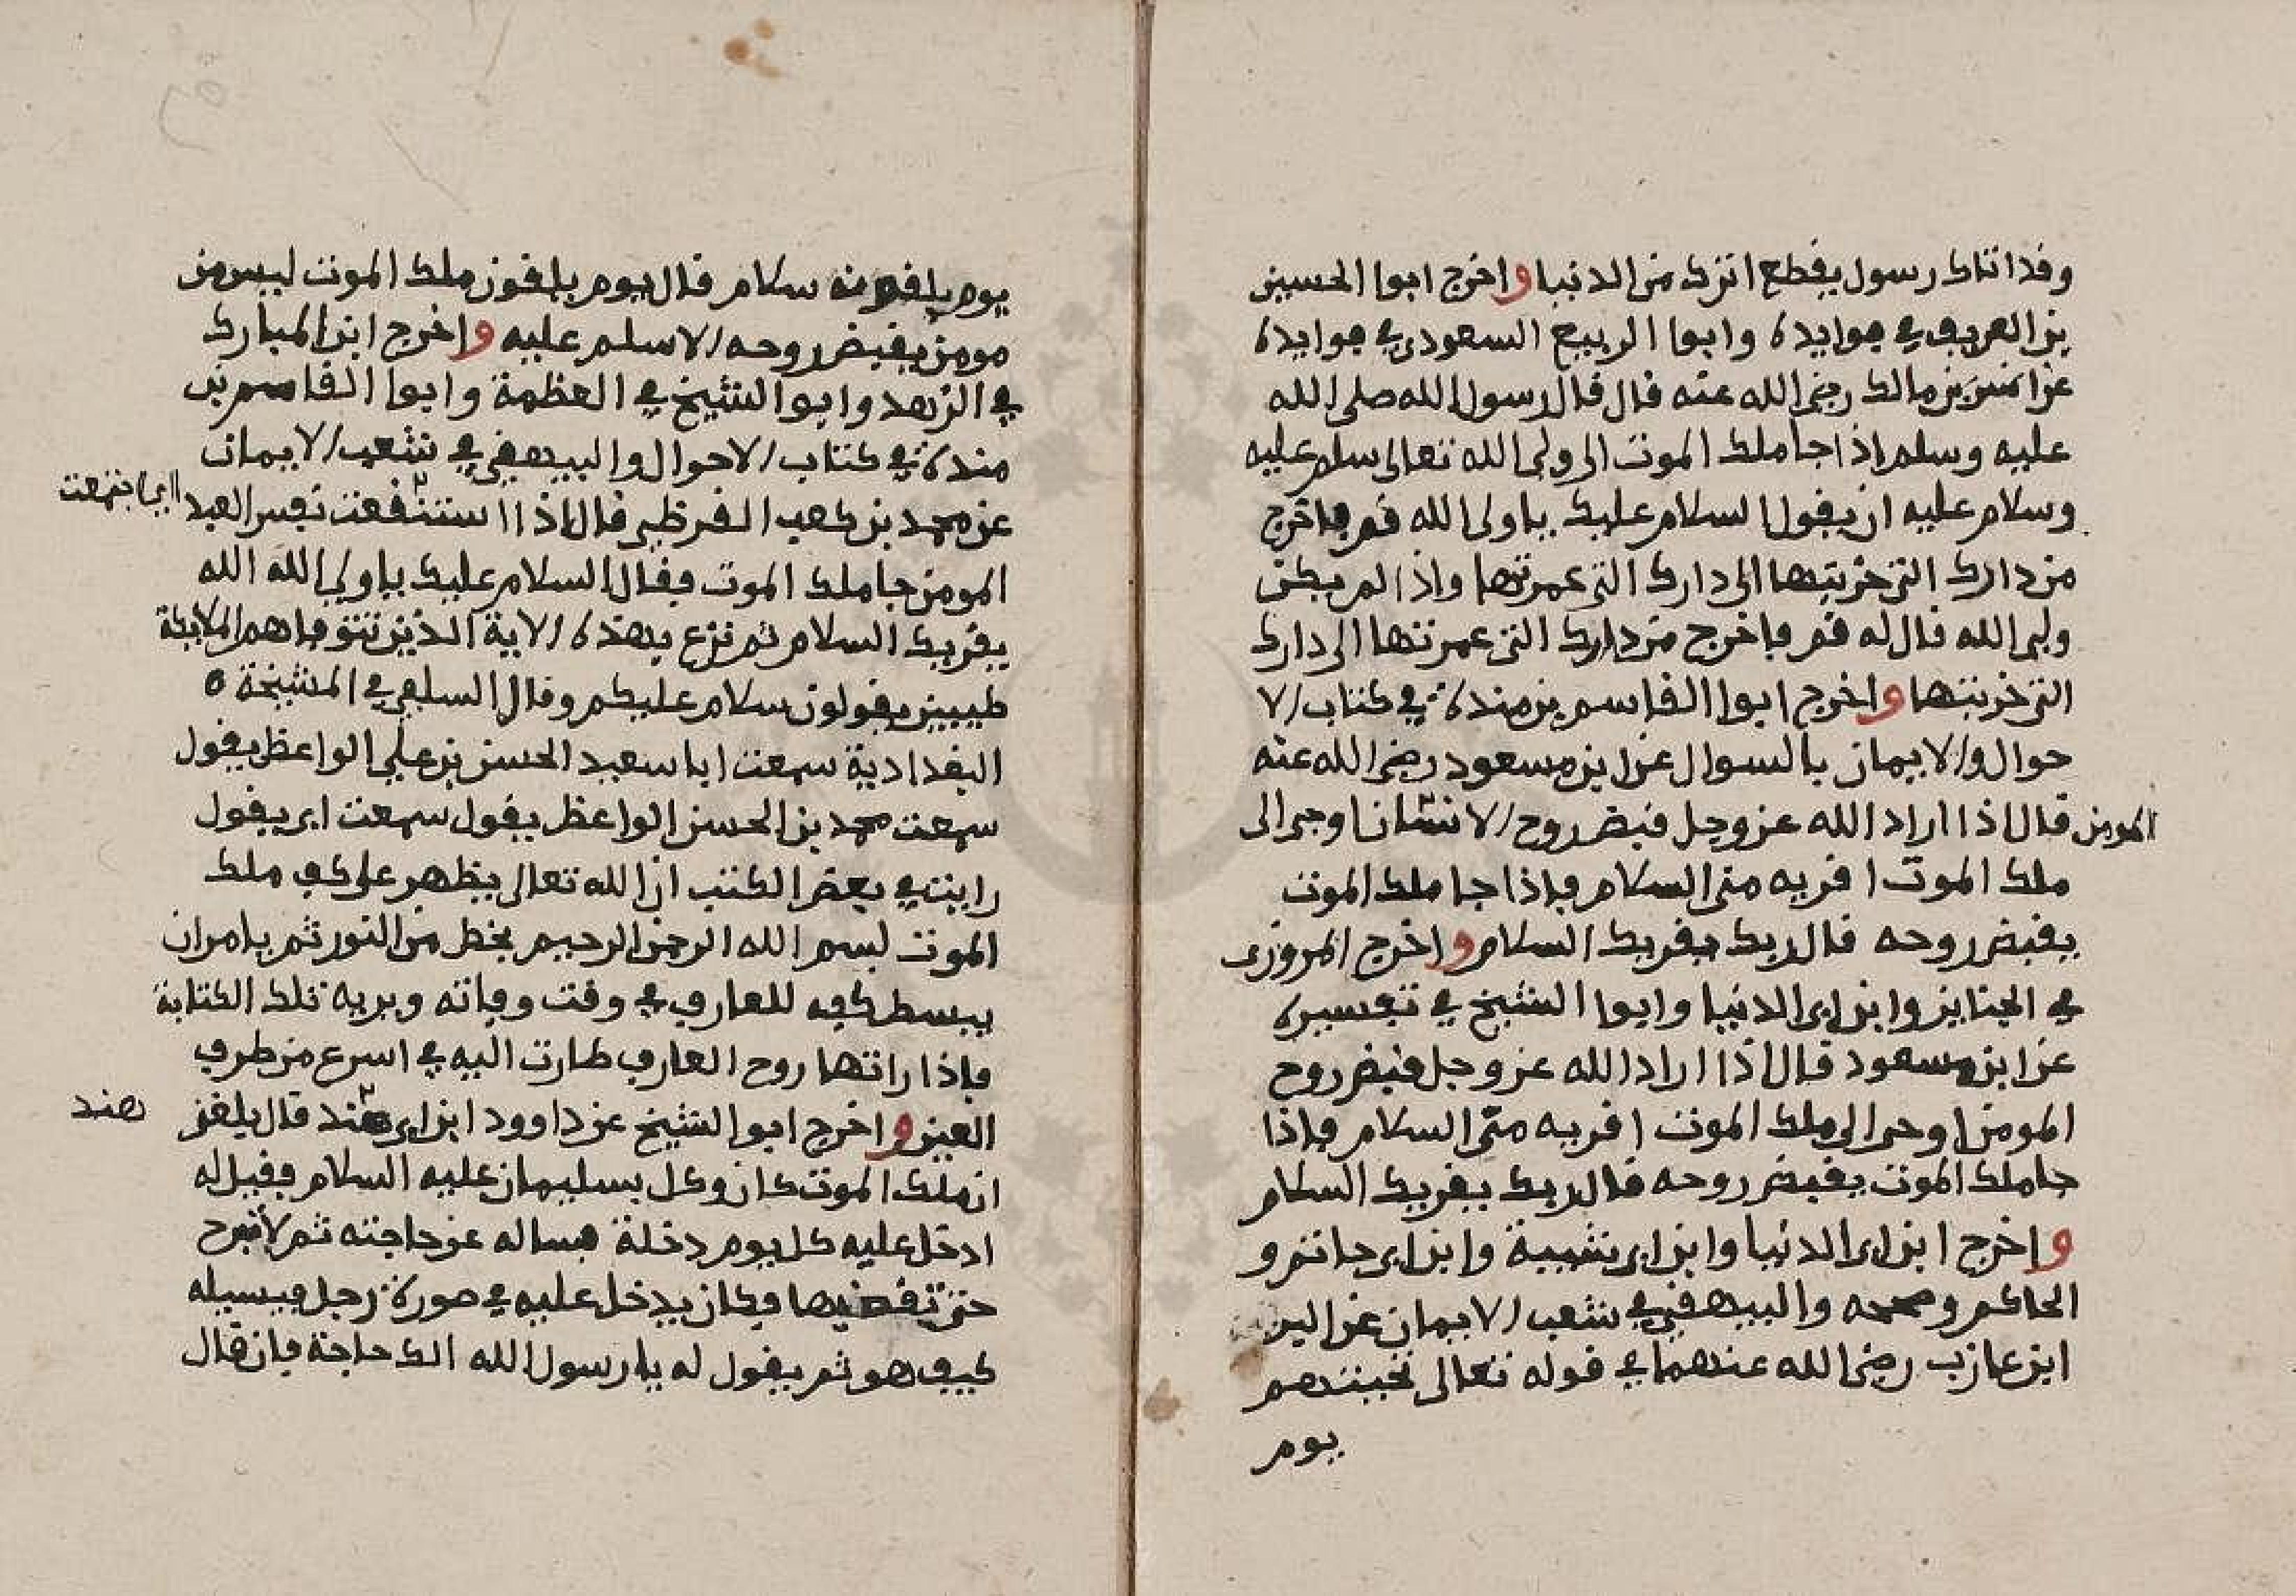 وقد اتاك رسول يقطع اثرك من الدنيا واخرج ابوا الحسين
بن العريف في فوايده وابوا الربيع السعودي في فوايده
عن انس بن مالك رضي الله عنه قال قال رسول الله صلى الله
عليه وسلم اذا جا ملك الموت الى ولي الله تعالى سلم عليه
وسلام عليه ان يقول السلام عليك يا ولي الله قم فاخرج
من دارك التي خربتها الى دارك التي عمرتها واذا لم يكن
ولي الله قال له قم فاخرج من دارك التي عمرتها الى دارك
التي خربتها واخرج ابوا القاسم بن منده في كتاب الا
حوال والايمان بالسوال عن ابن مسعود رضي الله عنه
قال اذا اراد الله عز وجل قبض روح الانسان اوحى الى
المومن
ملك الموت اقريه مني السلام فاذا جا ملك الموت
يقبض روحه قال ربك يقريك السلام واخرج المروزي
في الجنايز وابن ابي الدنيا وابوا الشيخ في تفسيره
عن ابن مسعود قال اذا اراد الله عز وجل قبض روح
المومن اوحى الى ملك الموت اقريه مني السلام فاذا
جا ملك الموت يقبض روحه قال ربك يقريك السلام
واخرج ابن ابي الدنيا وابن ابي شيبة وابن ابي حاتم و
الحاكم وصححه والبيهقي في شعب الايمان عن البر
ابن عازب رضي الله عنهما في قوله تعالى تحيتهم
يوم
يوم يلقونه سلام قال يوم يلقون ملك الموت ليس من
مومن يقبض روحه الا سلم عليه واخرج ابن المبارك
في الزهد وابوا الشيخ في العظمة وابوا القاسم بن
منده في كتاب الاحوال والبيهقي في شعب الايمان
عن محمد بن كعب القرظي قال اذا استنقعت نفس العبد
اي اجتمعت
المومن جا ملك الموت فقال السلام عليك يا ولي الله الله
يقريك السلام ثم نزع بهذه الاية الذين تتوفاهم الملايكة
طيبين يقولون سلام عليكم وقال السلفي في المشيخة
البغدادية سمعت ابا سعيد الحسن بن علي الواعظ يقول
سمعت محمد بن الحسن الواعظ يقول سمعت ابي يقول
رايت في بعض الكتب ان الله تعالى يظهر على كف ملك
الموت بسم الله الرحمن الرحيم بخط من النور ثم يامر ان
يبسط كفه للعارف في وقت وفاته ويريه تلك الكتابة
فاذا راتها روح العارف طارت اليه في اسرع من طرف
العين واخرج ابوا الشيخ عن داوود ابن ابي هند قال بلغني
هند
ان ملك الموت كان وكل بسليمان عليه السلام فقيل له
ادخل عليه كل يوم دخلة فساله عن حاجته ثم لا تبرح
حتى تقضيها فكان يدخل عليه في صورة رجل فيسيله
كيف هو ثم يقول له يا رسول الله الك حاجة فان قال